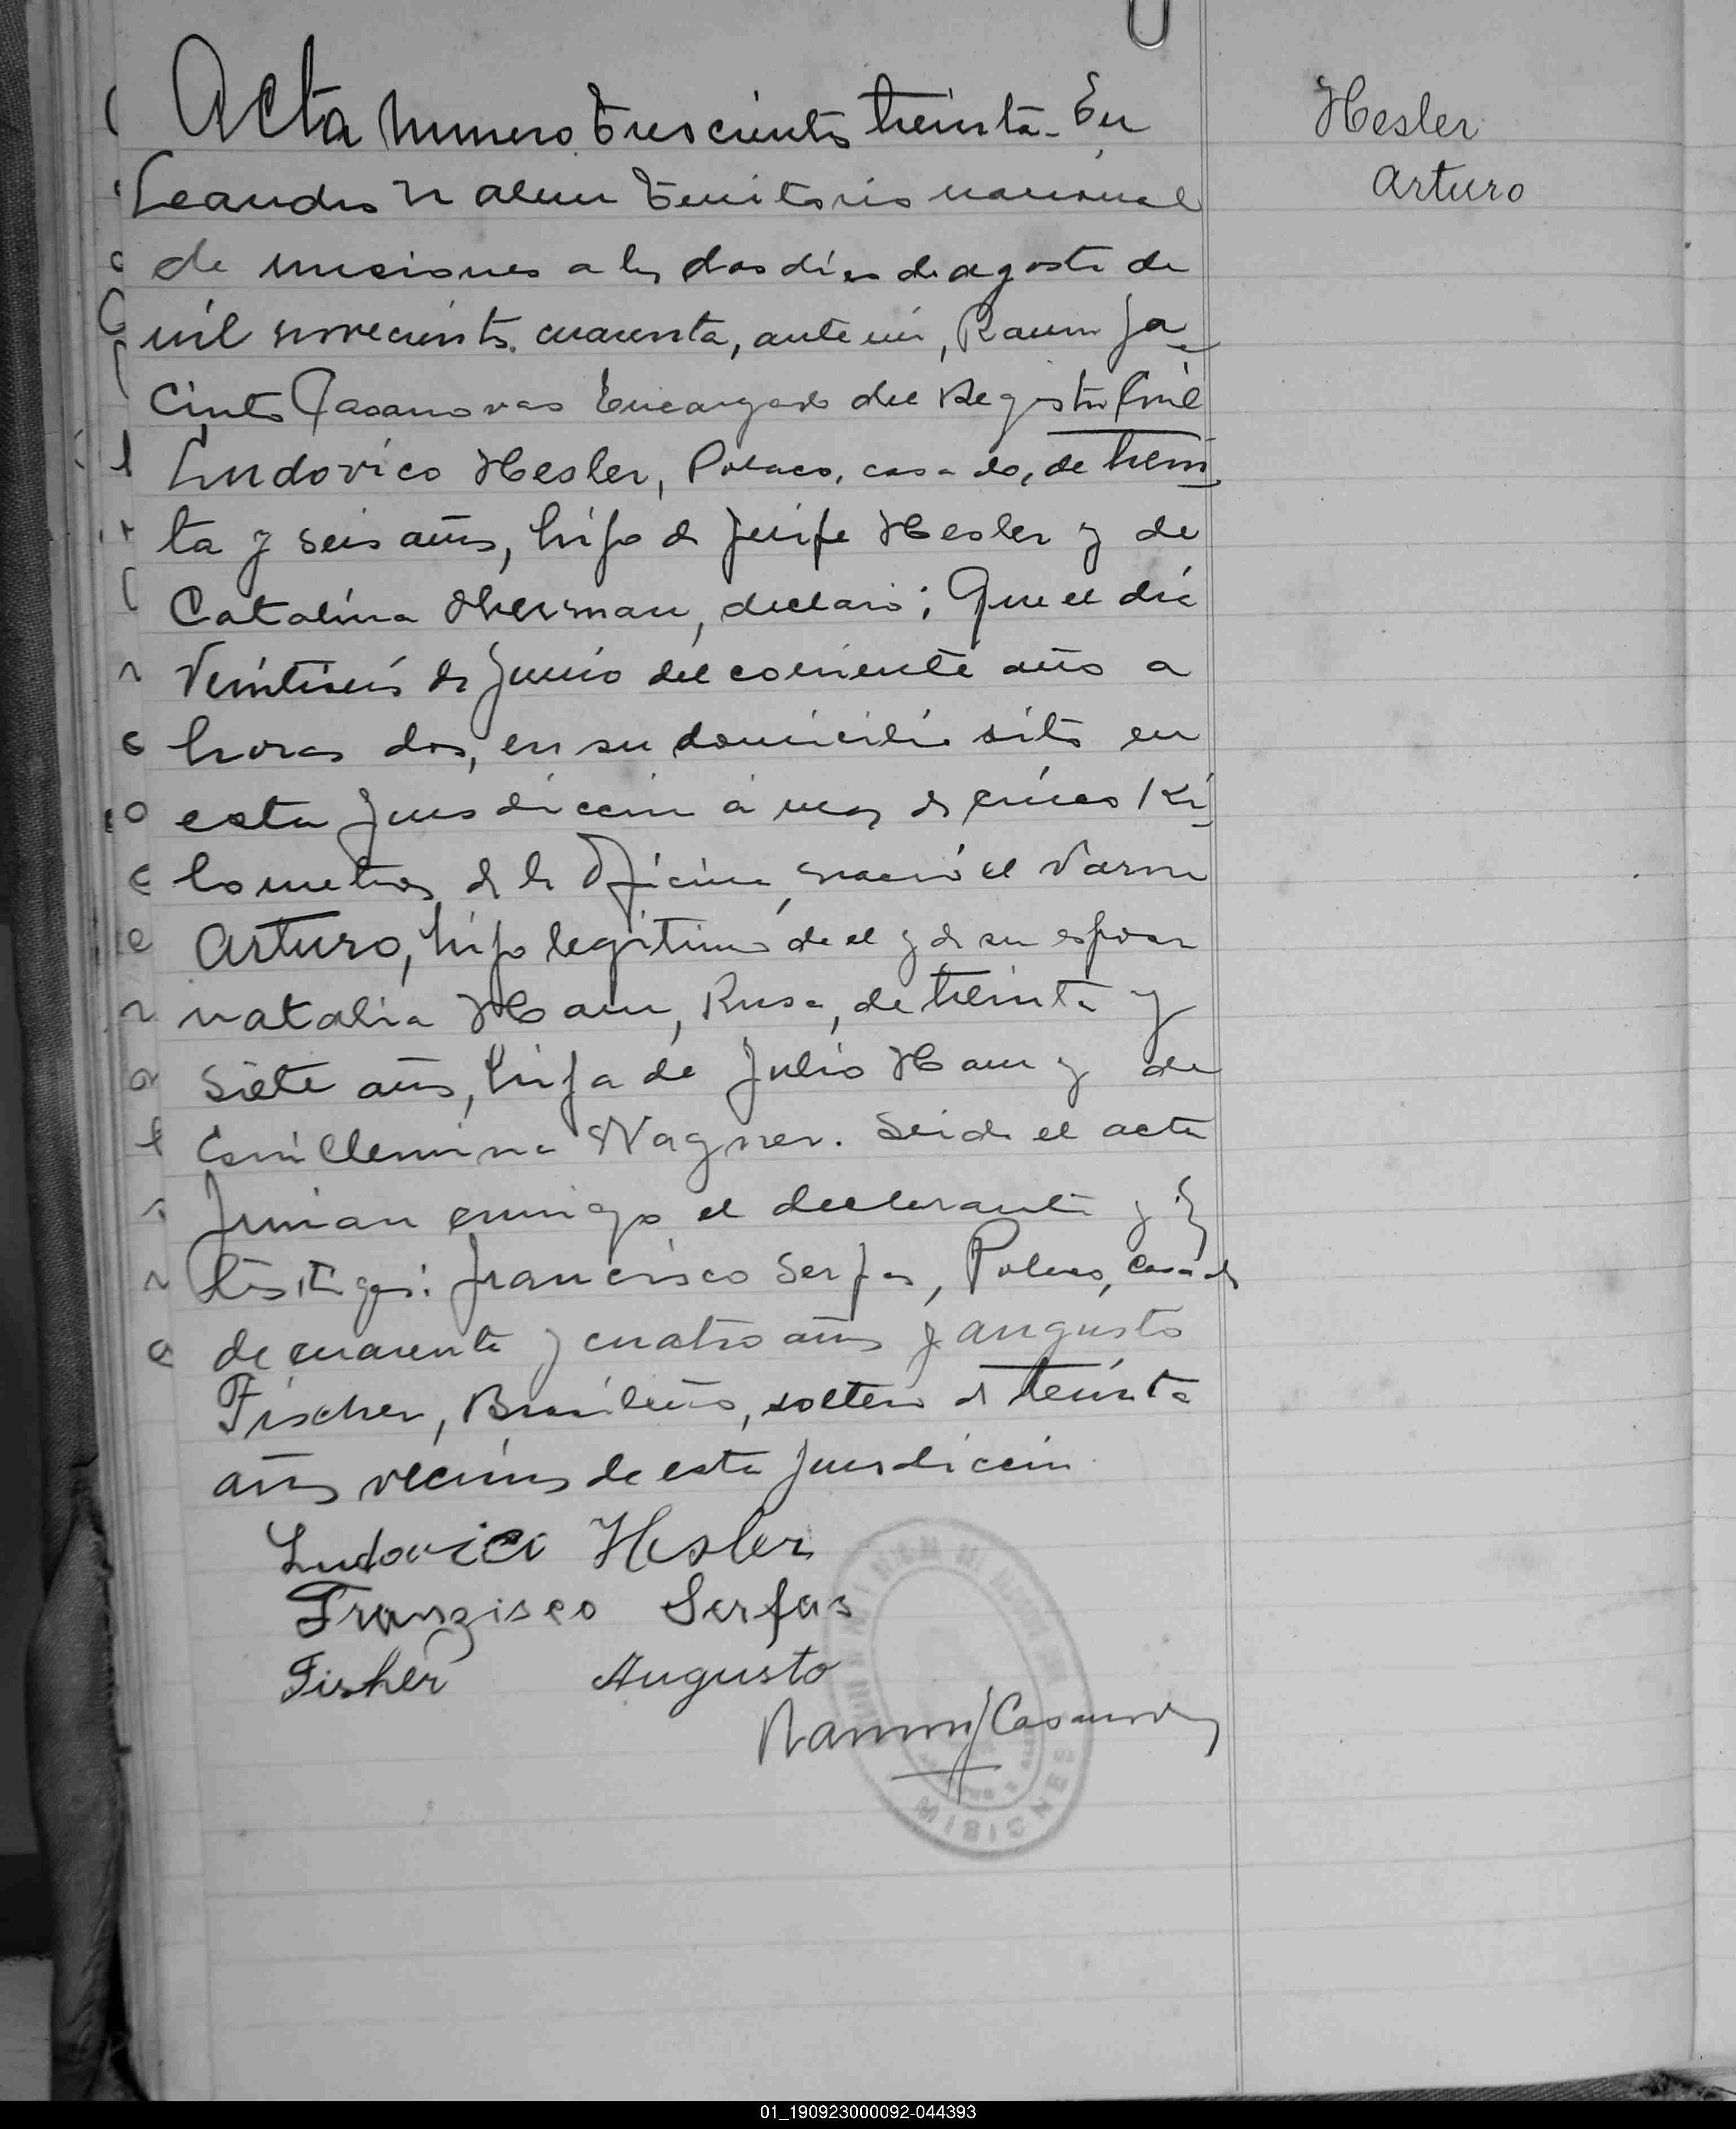 Acta Numero Trescientos treinta - En
Leandro N Alem Territorio nacional
de misiones a los dos días de agosto de
mil novecientos cuarenta, ante mi, Ramon Ja-
cinto Casanovas Encargado del Registro Civil
Ludovico Hesler, Polaco, casado, de trein-
ta y seis años, hijo de Hesler y de
Catalina declaró: Que el día
Veintiseis de Junio del corriente año a
horas dos, en su domicilio sito en
esta Jurisdiccion a mas de cinco Ki-
lometros de la Oficina, nació el Varon
Arturo, hijo legitimo de el y de su esposa
natalia Ham, Rusa, de treinta y
siete años, hija de Julio Ham y de
Wagner. Leida el acta
Firman conmigo el declarante y
testigos: Francisco Serfas, Polaco, casado
de cuarenta y cuatro años y augusto
Fischer, Brasileño, soltero de treinta
años vecinos de esta Jurisdiccion.
Ludovici Hesler
Franzisco Serfas
Fisher Augusto
Ramon J Casanovas
MISIONES
Hesler
Arturo
01_190923000092-044393